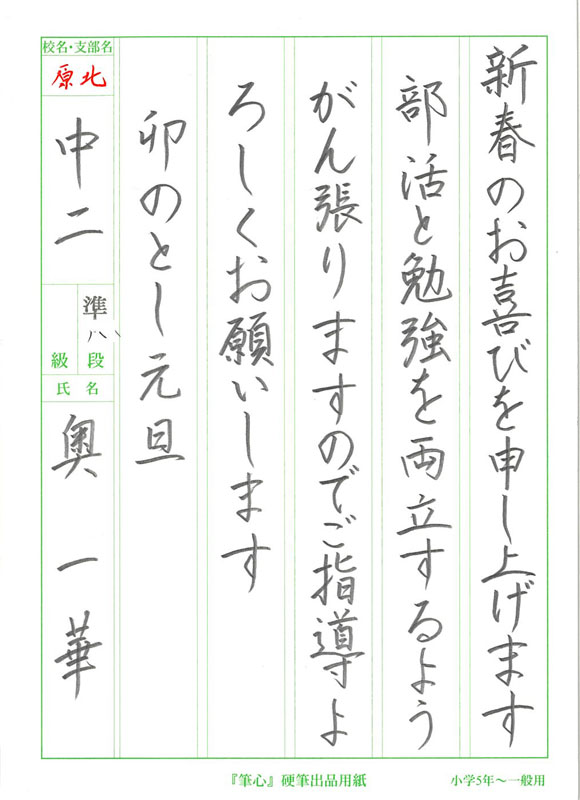 新春のお喜びを申し上げます
部活と勉強を両立するよう
がん張りますのでご指導よ
ろしくお願いします
卯のとし元旦
校名・支部名
原北
中二
準八
級段
氏名
奥一華
『筆心』硬筆出品用紙
小学5年～一般用